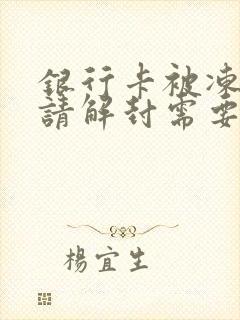 銀行卡被凍
請解封需要
楊宜生